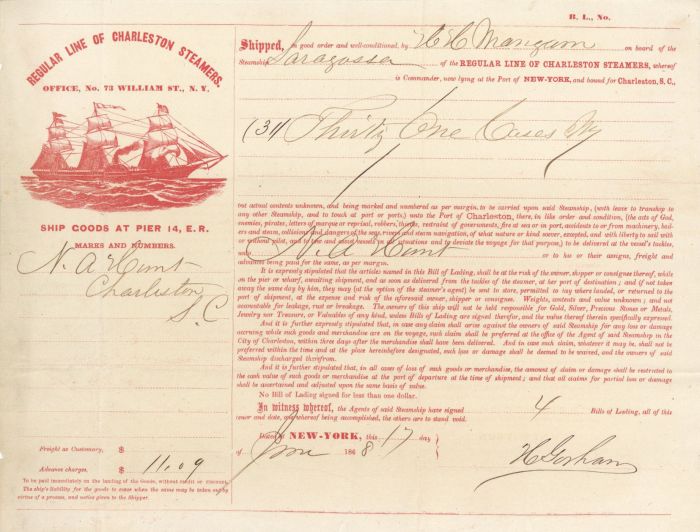 B. L., No.
REGULAR LINE OF CHARLESTON STEAMERS.
OFFICE, No. 73 WILLIAM ST., N. Y.
SHIP GOODS AT PIER 14, E. R.
MARKS AND NUMBERS.
N. A Hunt
Charleston
S. C
Freight as Customary, $
Advance charges, $ 11.09
To be paid immediately on the landing of the Goods, without credit or discount.
The ship's liability for the goods to cease when the same may be taken out by
virtue of a process, and notice given to the Shipper.
Shipped, in good order and well-conditioned, by H H Mangum on board of the
Steamship Saragossa of the REGULAR LINE OF CHARLESTON STEAMERS, whereof
is Commander, now lying at the Port of NEW-YORK, and bound for Charleston, S. C.,
(31) Thirty One Cases
but actual contents unknown, and being marked and numbered as per margin, to be carried upon said Steamship, (with leave to tranship to
any other Steamship, and to touch at port or ports,) unto the Port of Charleston, there, in like order and condition, (the acts of God,
enemies, pirates, letters of marque or reprisal, robbers, thieves, restraint of governments, fire at sea or in port, accidents to or from machinery, boil-
ers and steam, collisions and dangers of the seas, rivers and steam navigation, of what nature or kind soever, excepted, and with liberty to sail with
or without pilot, and to tow and assist vessels in all situations and to deviate the voyage for that purpose,) to be delivered at the vessel's tackles,
unto N A Hunt or to his or their assigns, freight and
advances being paid for the same, as per margin.
It is expressly stipulated that the articles named in this Bill of Lading, shall be at the risk of the owner, shipper or consignee thereof, while
on the pier or wharf, awaiting shipment, and as soon as delivered from the tackles of the steamer, at her port of destination; and if not taken
away the same day by him, they may (at the option of the steamer's agent) be sent to store, permitted to lay where landed, or returned to the
port of shipment, at the expense and risk of the aforesaid owner, shipper or consignee. Weights, contents and value unknown; and not
accountable for leakage, rust or breakage. The owners of this ship will not be held responsible for Gold, Silver, Precious Stones or Metals,
Jewelry nor Treasure, or Valuables of any kind, unless Bills of Lading are signed therefor, and the value thereof therein specifically expressed.
And it is further expressly stipulated, that in case any claim shall arise against the owners of said Steamship for any loss or damage
occurring while such goods and merchandise are on the voyage, such claim shall be preferred at the office of the Agent of said Steamship in the
City of Charleston, within three days after the merchandise shall have been delivered. And in case such claim, whatever it may be, shall not be
preferred within the time and at the place hereinbefore designated, such loss or damage shall be deemed to be waived, and the owners of said
Steamship discharged therefrom.
And it is further stipulated, that in all cases of loss of such goods or merchandise, the amount of claim or damage shall be restricted to
the cash value of such goods or merchandise at the port of departure at the time of shipment; and that all claims for partial loss or damage
shall be ascertained and adjusted upon the same basis of value.
No Bill of Lading signed for less than one dollar.
In witness whereof, the Agents of said Steamship have signed 4 Bills of Lading, all of this
tenor and date, one whereof being accomplished, the others to stand void.
Dated at NEW-YORK, this 17 day
of June 1868
H Gorham